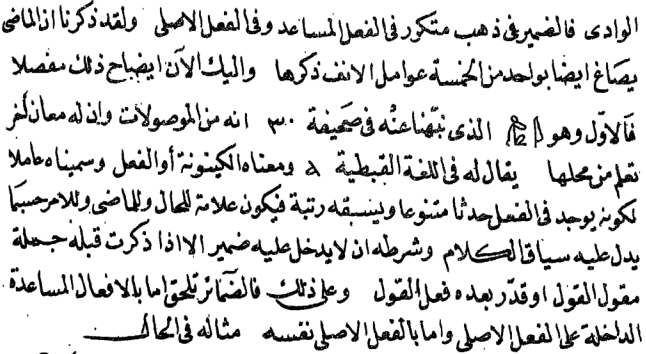 الوادى فالضمير فى ذهب متكرر فى الفعل المساعد وفى الفعل الاصلى ولقد ذكرنا ان الماضى
يصاغ ايضا بواحد من الخمسة عوامل الانف ذكرها واليك الآن ايضاح ذلك مفصلا
فالاول وهو الذى نبهنا عنه فى صحيفة ٣٠ انه من الموصولات وان له معان أخر
تعلم من محلها يقال له فى اللغة القبطية ⲁ ومعناه الكينونة أو الفعل وسميناه عاملا
لكونه يوجد فى الفعل حدثا متنوعا ويسبقه رتبة فيكون علامة للحال وللماضى وللامر حسبما
يدل عليه سياق الكلام وشرطه ان لا يدخل عليه ضمير الا اذا ذكرت قبله جملة
مقول القول او قدّر بعده فعل القول وعلى ذلك فالضمائر تلحق اما بالافعال المساعدة
الداخلة على الفعل الاصلى واما بالفعل الاصلى نفسه مثاله فى الحال